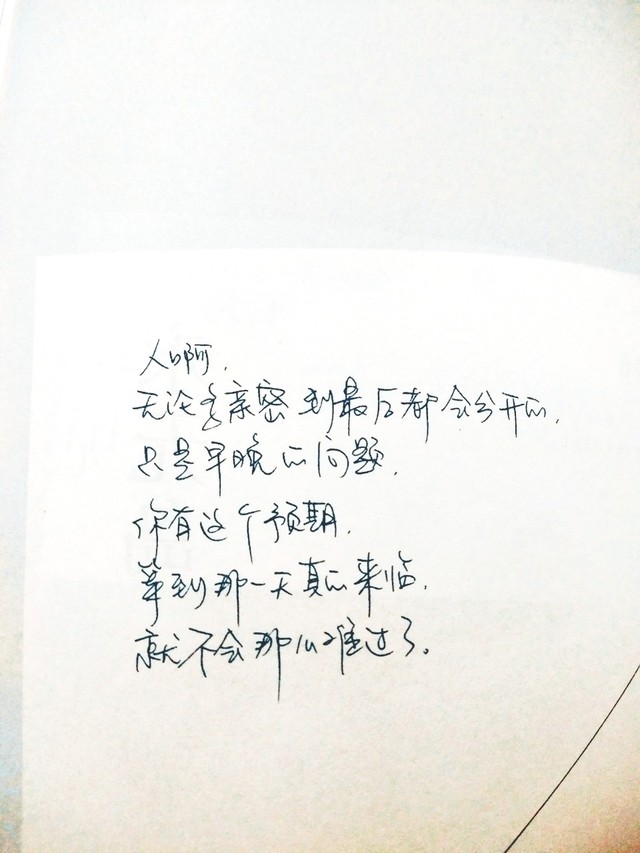 人啊,
无论多亲密到最后都会分开的,
只是早晚的问题,
你有这个预期,
等到那一天真的来临,
就不会那么难过了。